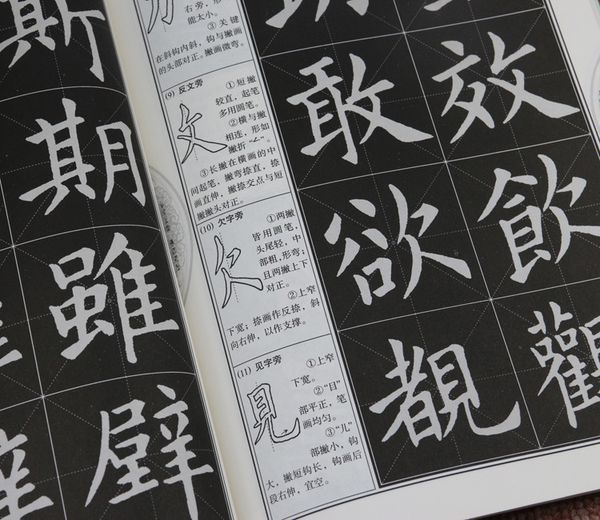 斯
期
雖
辟
右旁,形
能太小。
③关键
在斜钩内斜,钩与撇
的头部对正。撇画微弯。
(9) 反文旁
①短撇
较直,起笔
多用圆笔。
②横与撇
相连,形如
撇折“ㄥ”。
③长撇在横画的中
间起笔,撇弯捺直,捺
画直伸,撇捺交点与短
撇撇头对正。
攵
(10) 欠字旁
①两撇
皆用圆笔,
头尾轻,中
部粗,形弯;
且两撇上下
对正。
②上窄
下宽;捺画作反捺,斜
向右伸,以作支撑。
欠
(11) 见字旁
①上窄
下宽。
②“目”
部平正,笔
画均匀。
③“儿”
部撇小,钩
大,撇短钩长,钩画后
段右伸,宜空。
見
敢 效
欲 飲
覩 觀